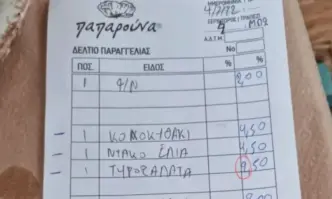 παπαρούνα
4/7/22
ΔΕΛΤΙΟ ΠΑΡΑΓΓΕΛΙΑΣ
No
ΠΟΣ. ΕΙΔΟΣ % %
1 Ψ/Ν 2,00
1 ΚΟΛΟΚΥΘΑΚΙ 4,50
1 ΝΤΑΚΟ ΕΛΙΑ 4,50
1 ΤΥΡΟΣΑΛΑΤΑ 9,50